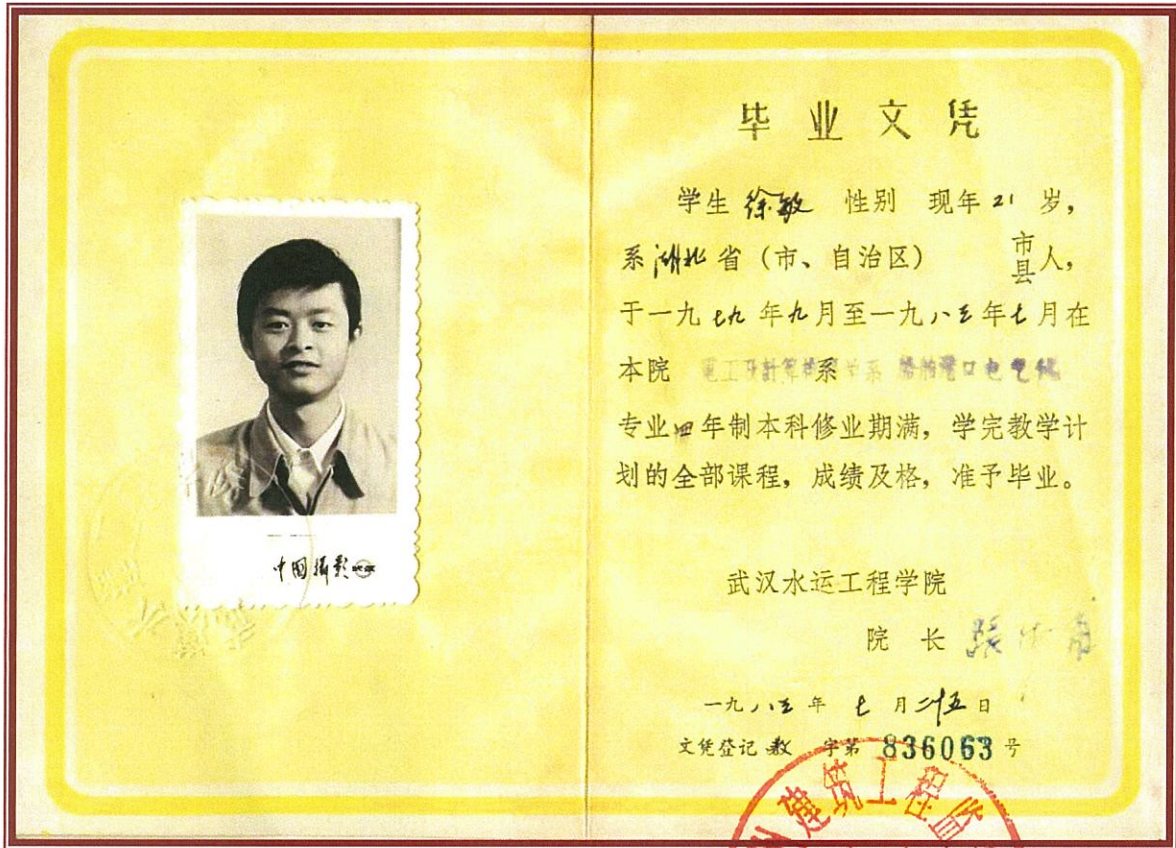 中国摄影
毕业文凭
学生 徐敏 性别 现年 21 岁，
系湖北省（市、自治区） 市县人，
于一九七九年九月至一九八三年七月在
本院 电工及计算 系 船舶港口电气化
专业四年制本科修业期满，学完教学计
划的全部课程，成绩及格，准予毕业。
武汉水运工程学院
院长 张
一九八三年 七月二十五日
文凭登记 教 字第 836063 号
建筑工程监